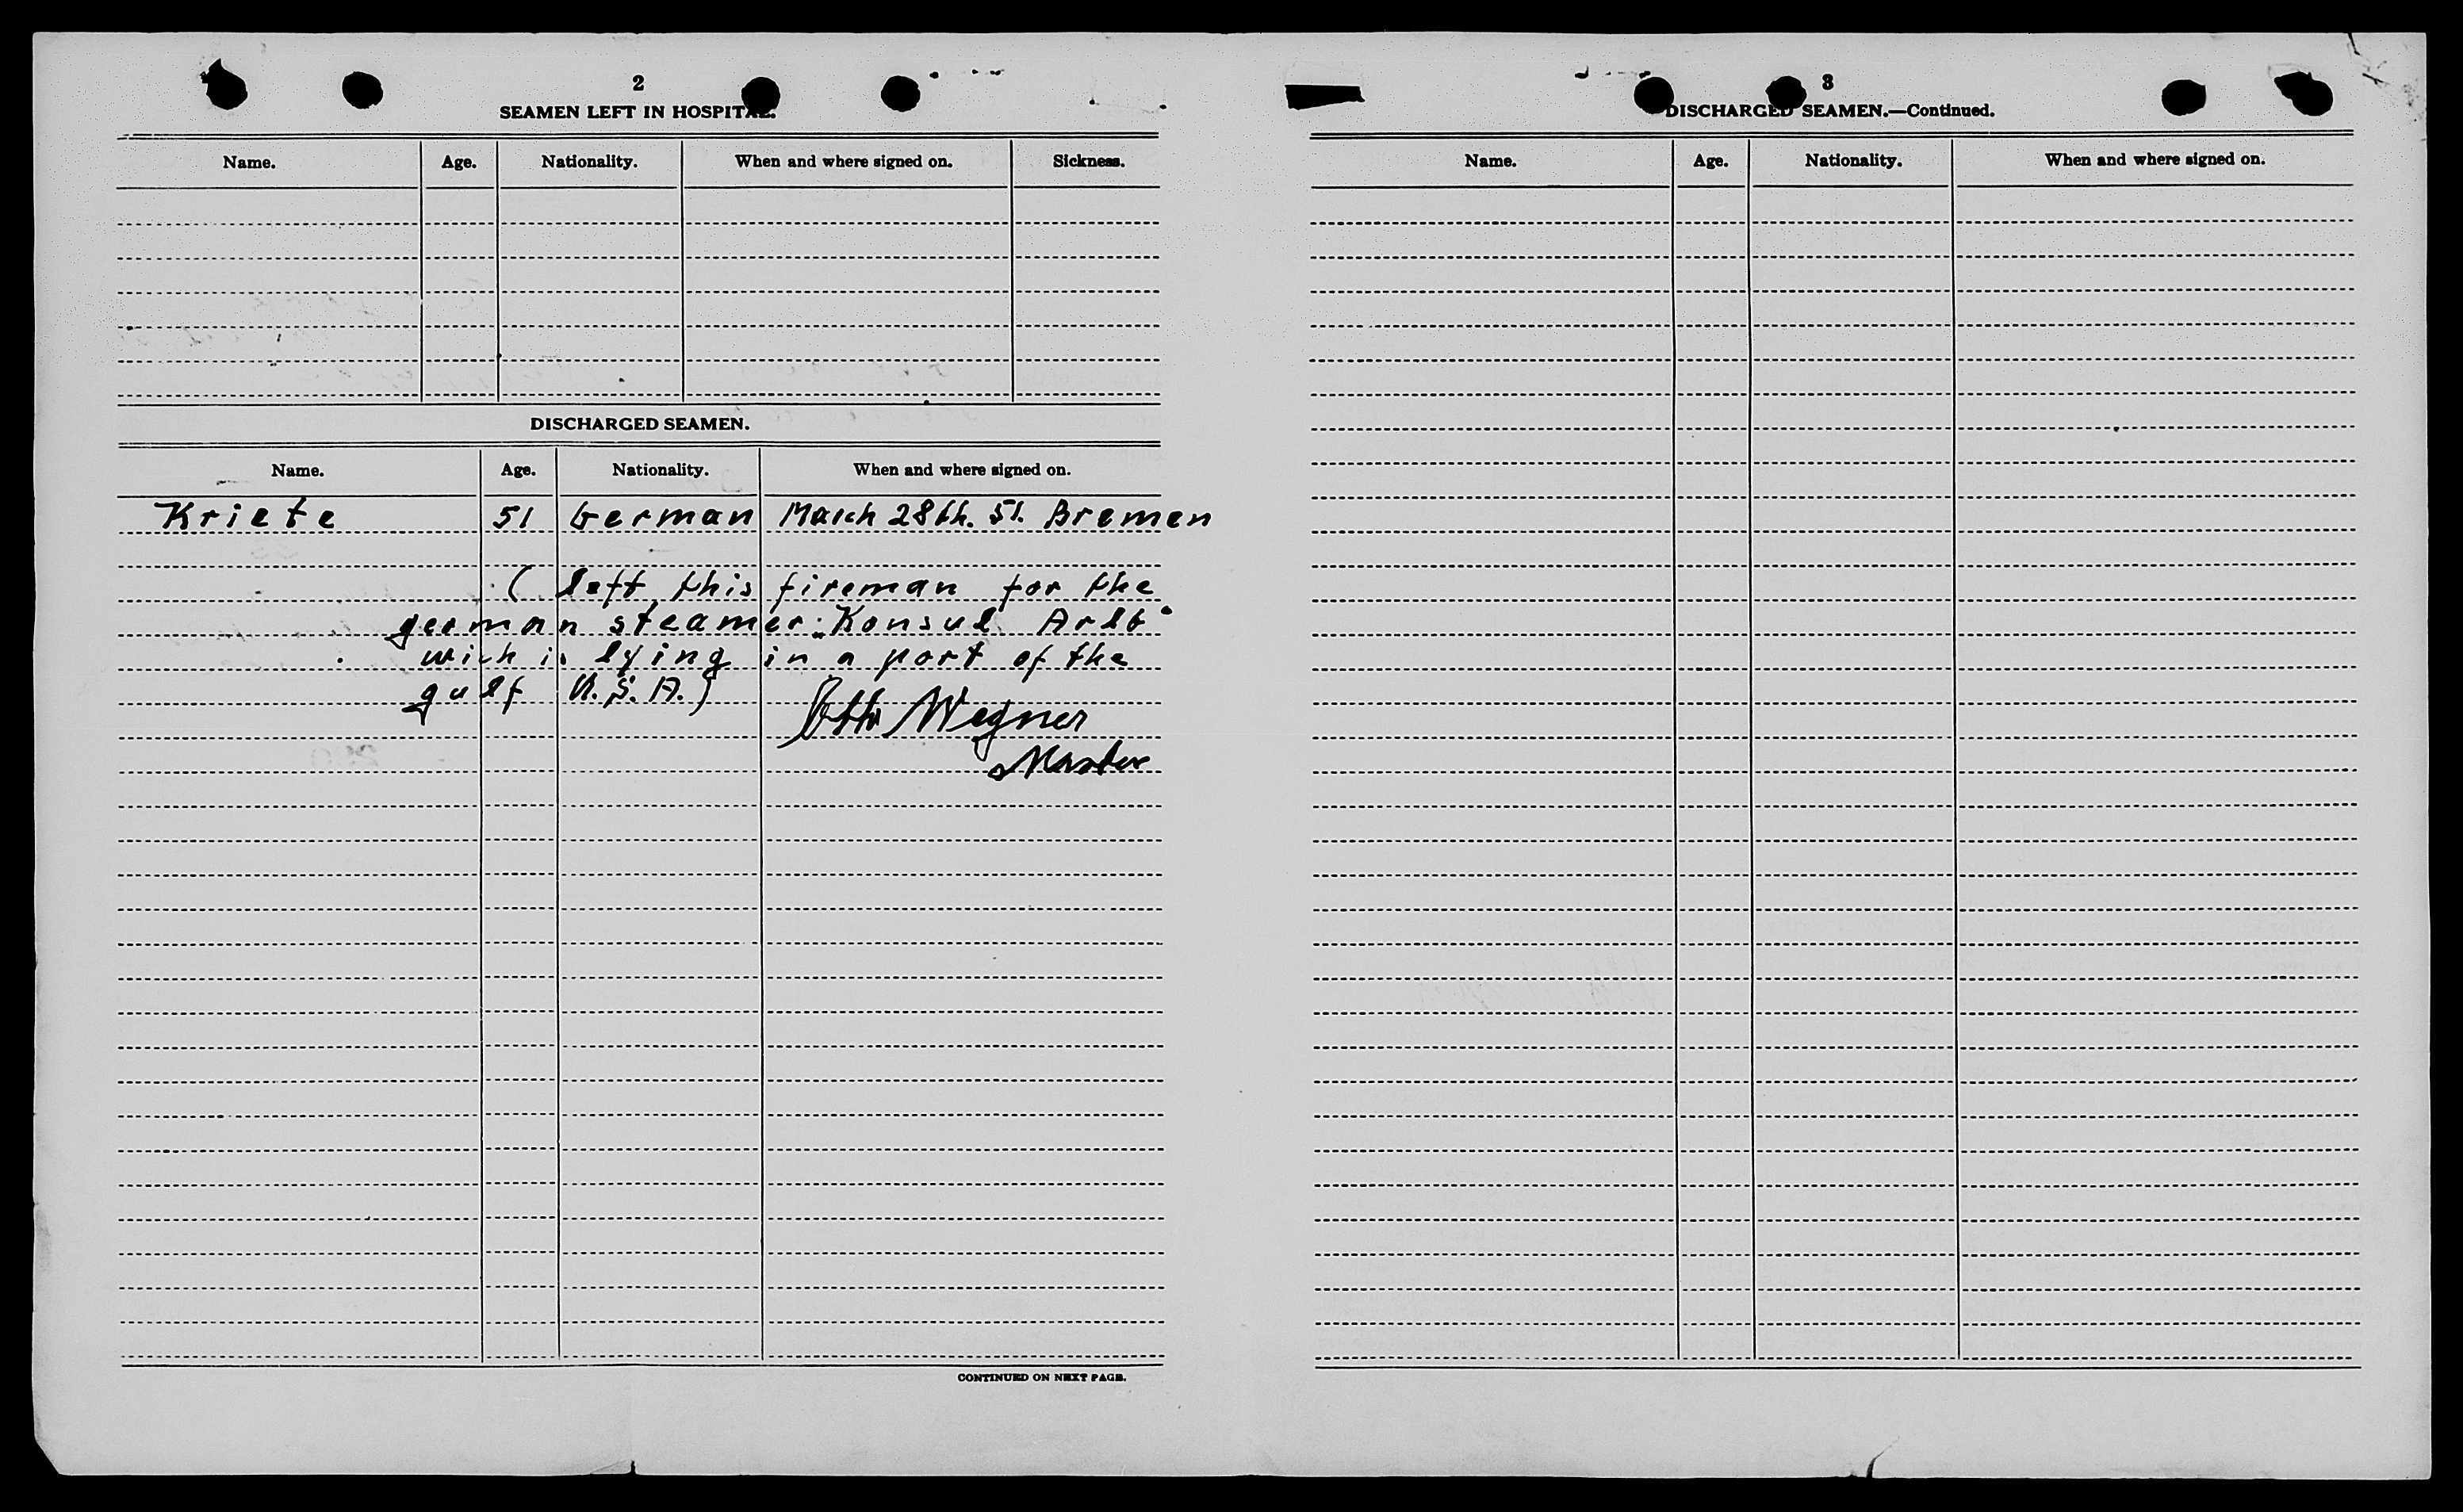 2
SEAMEN LEFT IN HOSPITAL.
Name. Age. Nationality. When and where signed on. Sickness.
DISCHARGED SEAMEN.
Name. Age. Nationality. When and where signed on.
Kriete 51 German March 28th. 51. Bremen
( left this fireman for the
german steamer: „Konsul Arlt“
wich is lying in a port of the
gulf U.S.A.)
Otto Wegner
Master
CONTINUED ON NEXT PAGE.
3
DISCHARGED SEAMEN.—Continued.
Name. Age. Nationality. When and where signed on.